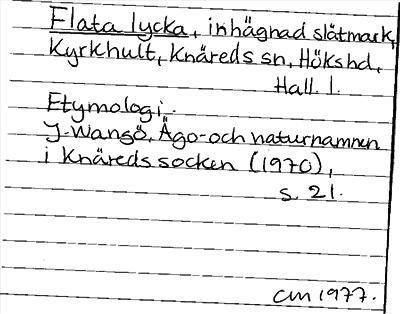 Flata lycka, inhägnad slåtmark,
Kyrkhult, Knäreds sn, Höks hd,
Hall. l.
Etymologi.
J. Wangö, Ägo- och naturnamnen
i Knäreds socken (1970),
s. 21.
CM 1977.